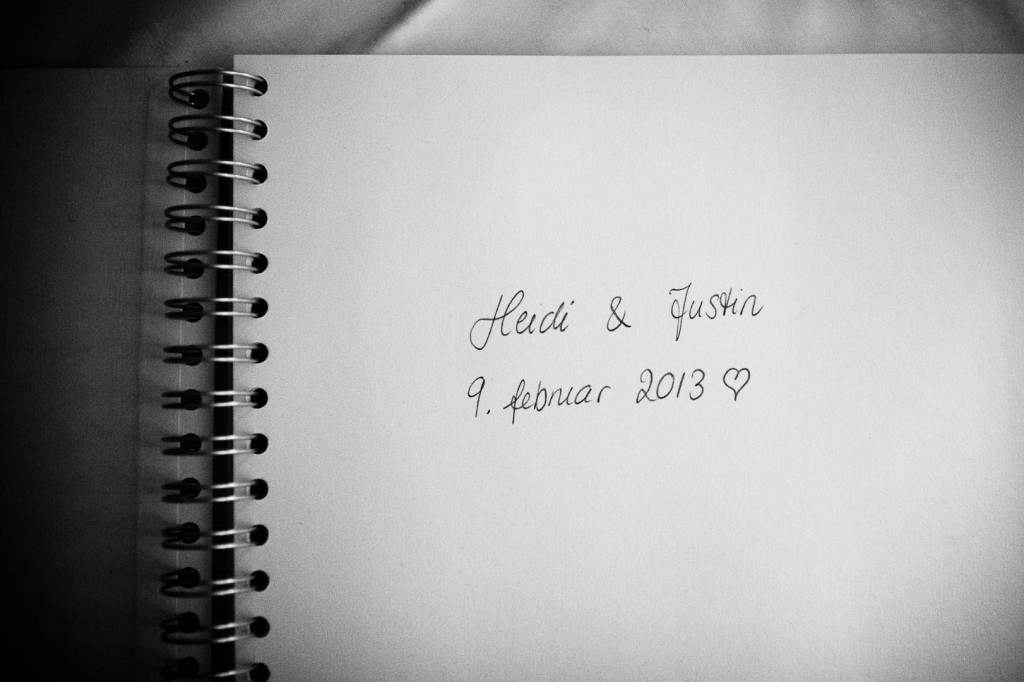 Heidi & Justin
9. februar 2013 ♡